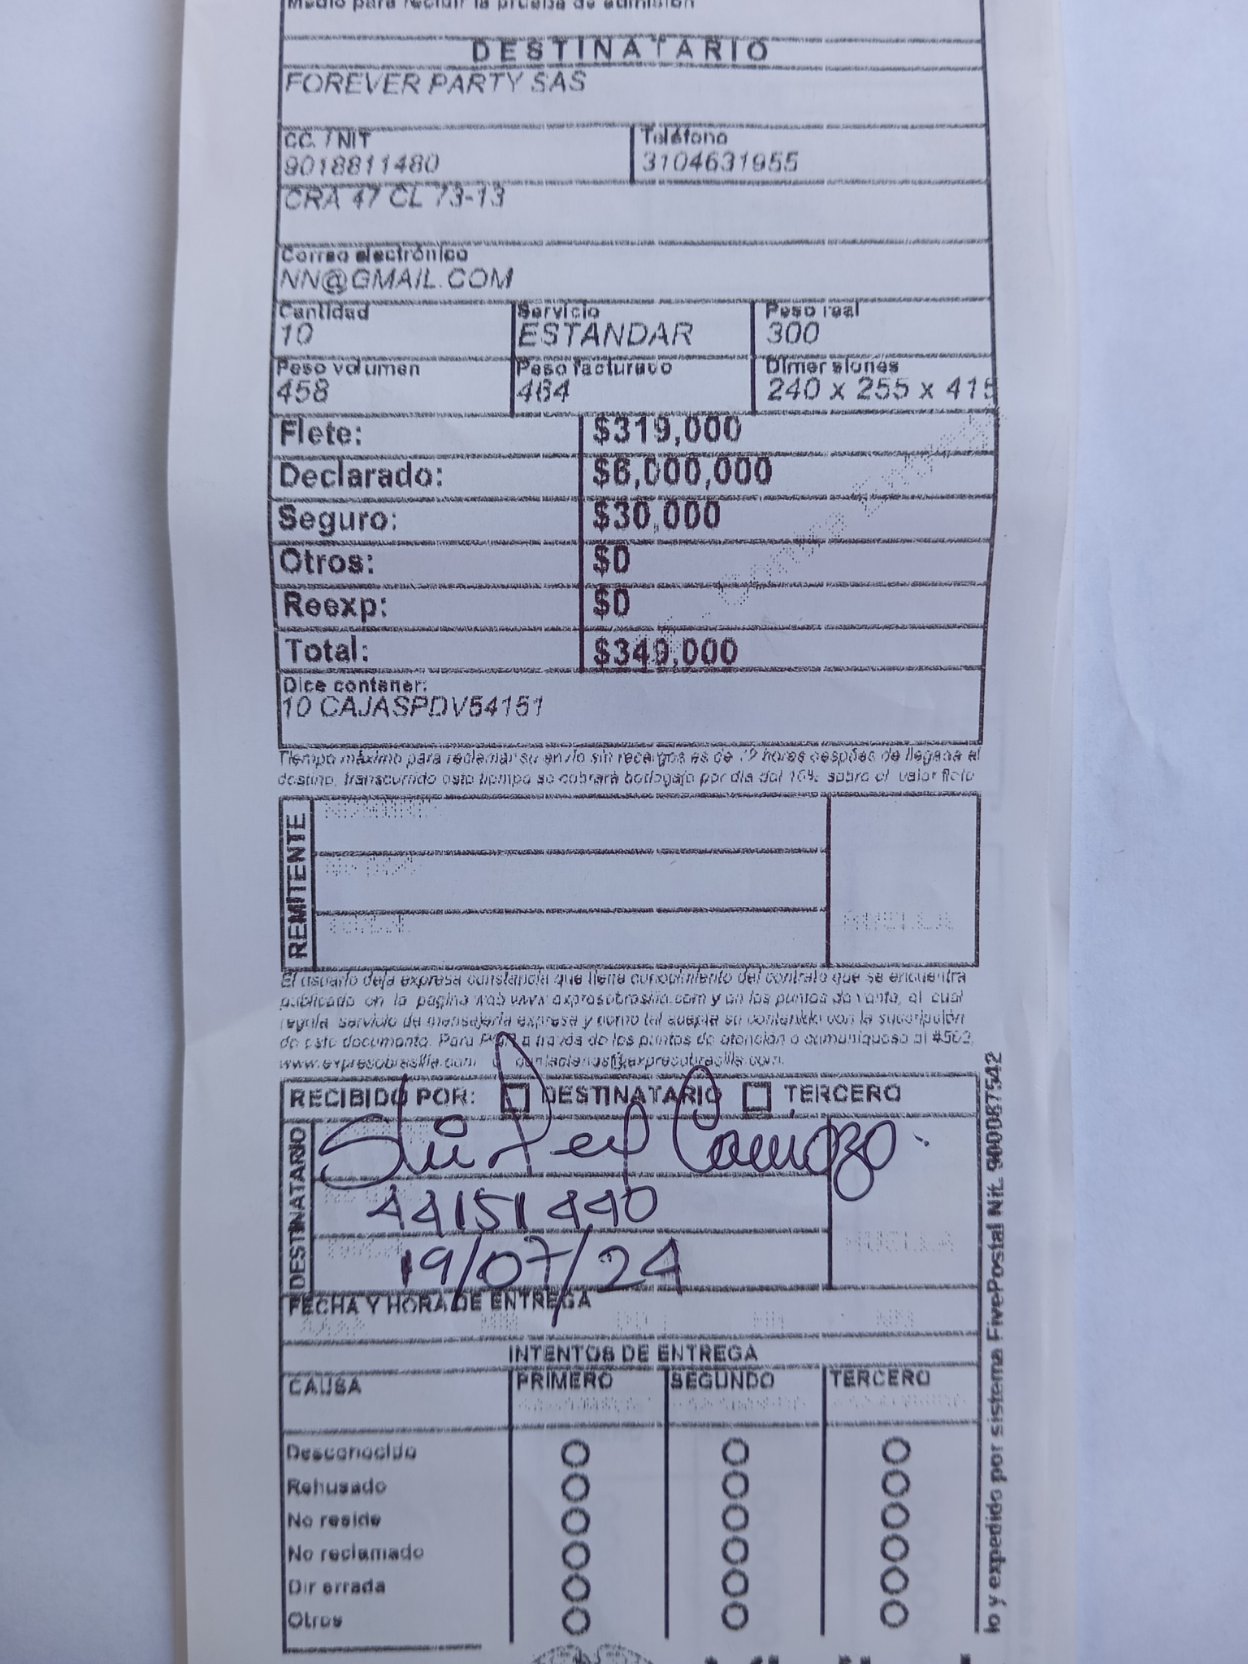 Medio para recibir la prueba de admisión
DESTINATARIO
FOREVER PARTY SAS
CC. / NIT
9018811480
Teléfono
3104631955
CRA 47 CL 73-13
Correo electrónico
NN@GMAIL.COM
Cantidad
10
Servicio
ESTANDAR
Peso real
300
Peso volumen
458
Peso facturado
464
Dimensiones
240 x 255 x 415
Flete: $319,000
Declarado: $6,000,000
Seguro: $30,000
Otros: $0
Reexp: $0
Total: $349,000
Dice contener:
10 CAJASPDV54151
Tiempo máximo para reclamar su envío sin recargos es de 72 horas despúes de llegada al
destino, transcurrido este tiempo se cobrará bodegaje por día del 10% sobre el valor flete
REMITENTE
HUELLA
El usuario deja expresa constancia que tiene conocimiento del contrato que se encuentra
publicado en la pagina web www.expresobrasilia.com y en los puntos de venta, el cual
regula servicio de mensajería expresa y como tal acepta su contenido con la suscripción
de este documento. Para PQR a través de los puntos de atención o comuniquese al #502,
www.expresobrasilia.com o contactenos@expresobrasilia.com.
RECIBIDO POR: DESTINATARIO TERCERO
DESTINATARIO
44151440
19/07/24
HUELLA
FECHA Y HORA DE ENTREGA
INTENTOS DE ENTREGA
CAUSA PRIMERO SEGUNDO TERCERO
Desconocido
Rehusado
No reside
No reclamado
Dir errada
Otros
lo y expedido por sistema FivePostal Nit. 900087542